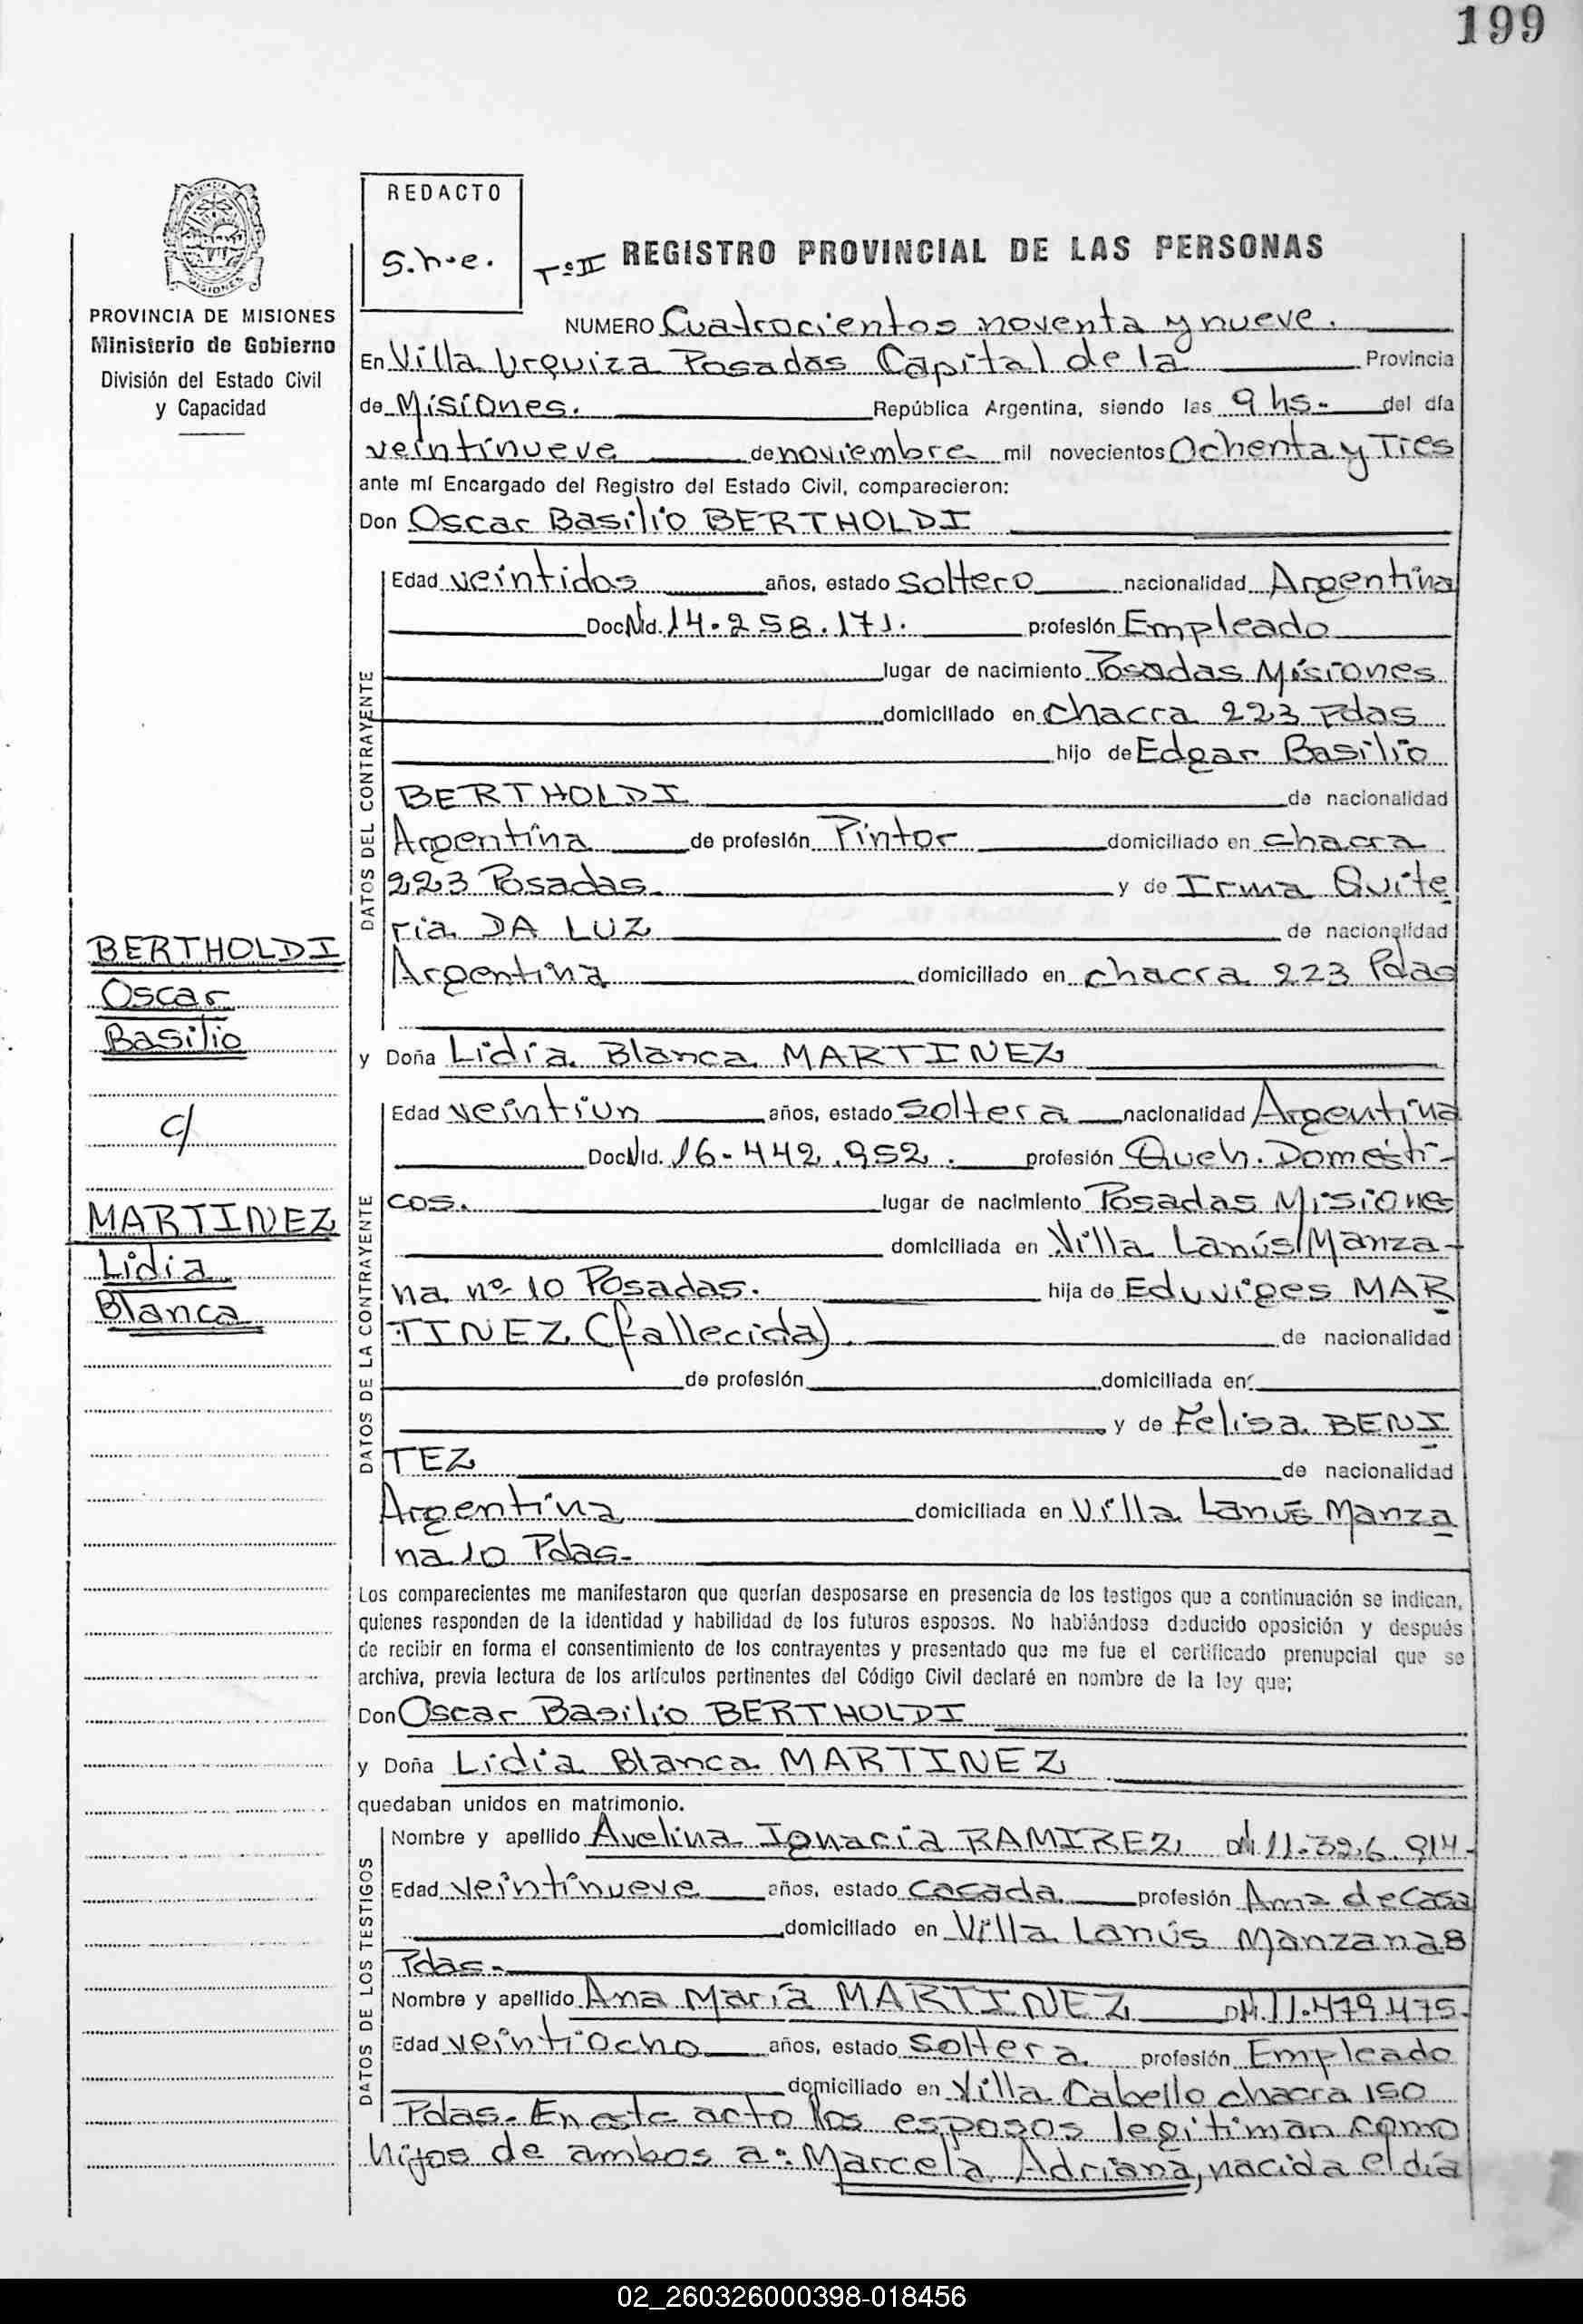 199
REDACTO
S.h.e.
Tº II REGISTRO PROVINCIAL DE LAS PERSONAS
PROVINCIA DE MISIONES
Ministerio de Gobierno
División del Estado Civil
y Capacidad
NUMERO Cuatrocientos noventa y nueve.
En Villa Urquiza Posadas Capital de la Provincia
de Misiones. República Argentina, siendo las 9 hs- del día
veintinueve de noviembre mil novecientos Ochenta y Tres
ante mí Encargado del Registro del Estado Civil, comparecieron:
Don Oscar Basilio BERTHOLDI
DATOS DEL CONTRAYENTE
Edad veintidos años, estado soltero nacionalidad Argentina
Doc Nid. 14.258.171. profesión Empleado
lugar de nacimiento Posadas Misiones
domiciliado en chacra 223 Pdas
hijo de Edgar Basilio
BERTHOLDI de nacionalidad
Argentina de profesión Pintor domiciliado en chacra
223 Posadas y de Irma Quite
ria DA LUZ de nacionalidad
Argentina domiciliado en chacra 223 Pdas
BERTHOLDI
Oscar
Basilio
c/
MARTINEZ
Lidia
Blanca
y Doña Lidia Blanca MARTINEZ
DATOS DE LA CONTRAYENTE
Edad veintiun años, estado soltera nacionalidad Argentina
Doc Nid. 16.442.952. profesión Queh. Domésti-
cos. lugar de nacimiento Posadas Misiones
domiciliada en Villa Lanús Manza-
na nº 10 Posadas. hija de Eduviges MAR
TINEZ (fallecida). de nacionalidad
de profesión domiciliada en
y de Felisa BENI
TEZ de nacionalidad
Argentina domiciliada en Villa Lanús Manza
na 10 Pdas-
Los comparecientes me manifestaron que querían desposarse en presencia de los testigos que a continuación se indican,
quienes responden de la identidad y habilidad de los futuros esposos. No habiéndose deducido oposición y después
de recibir en forma el consentimiento de los contrayentes y presentado que me fue el certificado prenupcial que se
archiva, previa lectura de los artículos pertinentes del Código Civil declaré en nombre de la ley que;
Don Oscar Basilio BERTHOLDI
y Doña Lidia Blanca MARTINEZ
quedaban unidos en matrimonio.
DATOS DE LOS TESTIGOS
Nombre y apellido Avelina Ignacia RAMIREZ 11.326.914-
Edad veintinueve años, estado casada profesión Ama de Casa
domiciliado en Villa Lanús Manzana 8
Pdas-
Nombre y apellido Ana María MARTINEZ 11.479.475-
Edad veintiocho años, estado soltera profesión Empleado
domiciliado en Villa Cabello chacra 150
Pdas. En este acto los esposos legitiman como
hijos de ambos a: Marcela Adriana, nacida el día
02_260326000398-018456